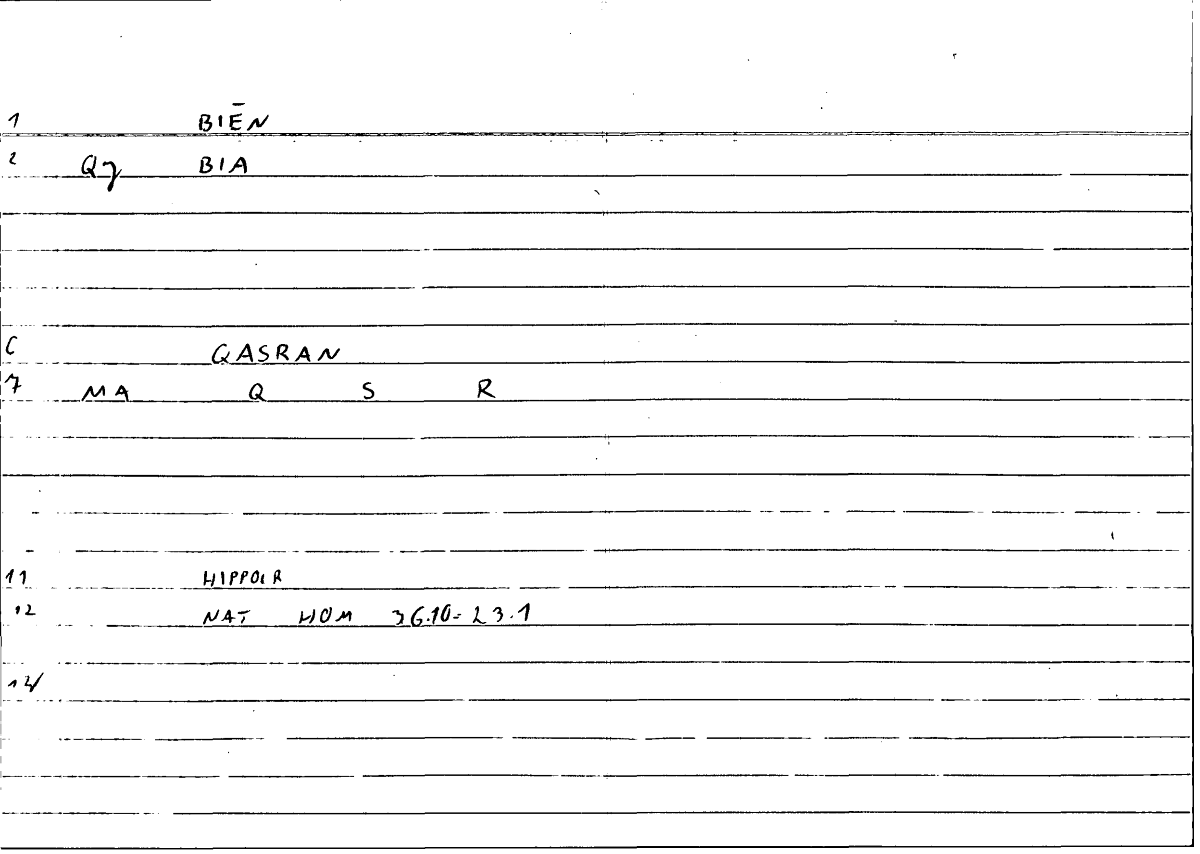 1 BIĒN
2 Qγ BIA
C QASRAN
7 MA Q S R
11 HIPPOCR
12 NAT HOM 36.10 = 23.1